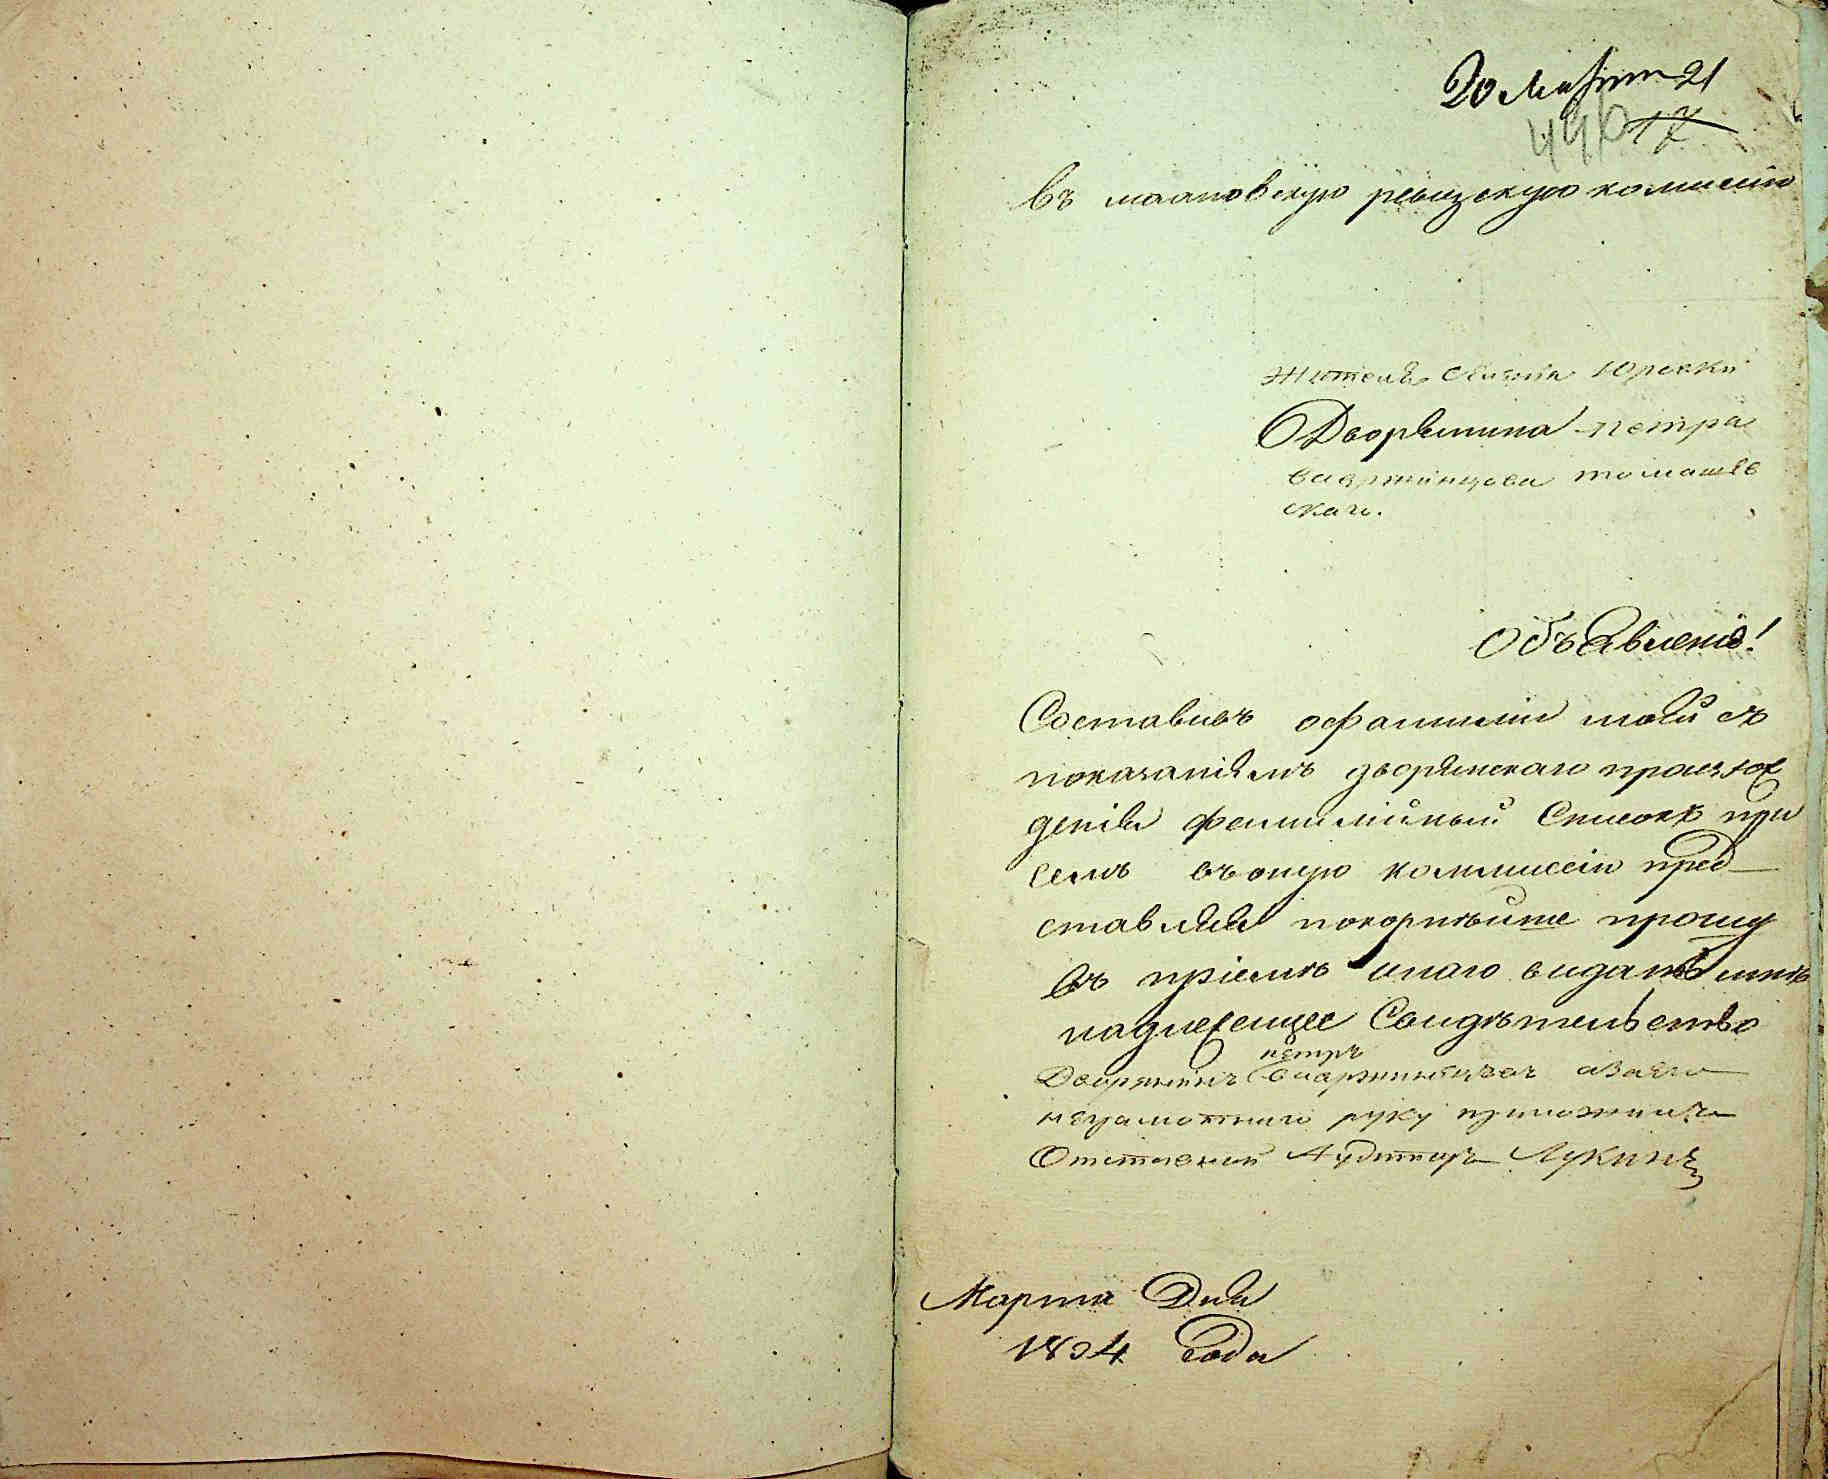 20 Марта 21
440 17
въ мали­новскую ревизскую комисию
Жителя селенія Юровки
Дворянина петра
вавржинцова томашев
скаго.
Объявленіе!
Составивъ офамиліи моей съ
показаніемъ дворянскаго происхож
денія фамилійный Списокъ при
семъ въоную коммиссію пред
ставляя покорнѣйше прошу
Въ пріемѣ онаго видать мнѣ
надлежащее Свидѣтельство
петръ
Дворянинъ вавржинцовъ азаего
неграмотнаго руку приложилъ
Отставной Аудиторъ Лукинъ
Марта Дня
1834 Года